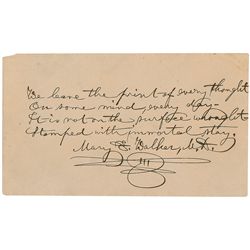 We leave the print of every thought
On some mind, every day—
It is not on the surface wrought
Stamped with immortal stay.
Mary E. Walker, M.D.